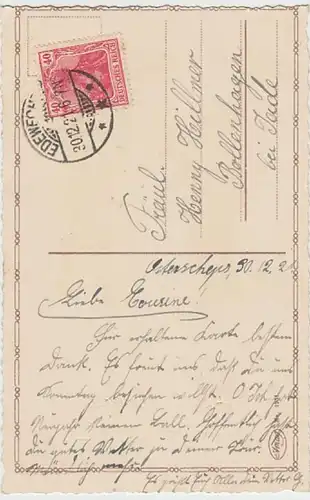 40
DEUTSCHES REICH
EDEWECHT
30.12.21
Fräul.
Henny Hillmer
Bollenhagen
bei Jade
Osterscheps, 30.12.21
Liebe Cousine!
Für erhaltene Karte besten
Dank. Es freut uns daß du uns
Sonntag besuchen willst. O Ith. hat
Neujahr keinen Ball. Hoffentlich hast
du gutes Wetter zu deiner Tour.
Es grüßt Euch Alle dein Vetter G.